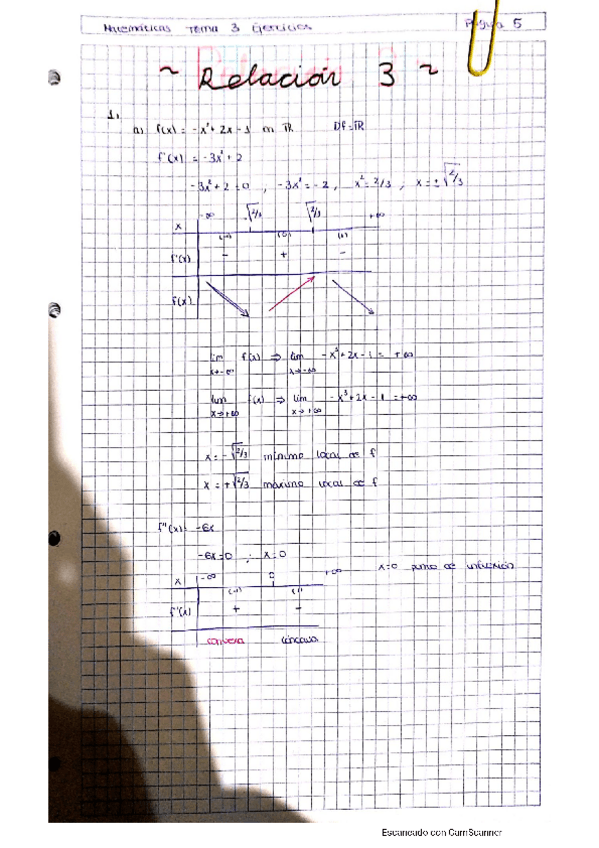 Matemáticas Tema 3 Ejercicios Página 5
~ Relación 3 ~
1.
a) f(x) = -x³ + 2x - 1 en ℝ Df = ℝ
f'(x) = -3x² + 2
-3x² + 2 = 0 , -3x² = -2 , x² = 2/3 , x = ±√2/3
-∞ -√2/3 √2/3 +∞
x
f'(x) - + -
f(x)
lim x→-∞ f(x) ⇒ lim x→-∞ -x³ + 2x - 1 = +∞
lim x→+∞ f(x) ⇒ lim x→+∞ -x³ + 2x - 1 = +∞
x = -√2/3 mínimo local de f
x = +√2/3 máximo local de f
f''(x) = -6x
-6x = 0 ; x = 0
x -∞ 0 +∞ x=0 punto de inflexión
f''(x) + -
convexa cóncava
Escaneado con CamScanner